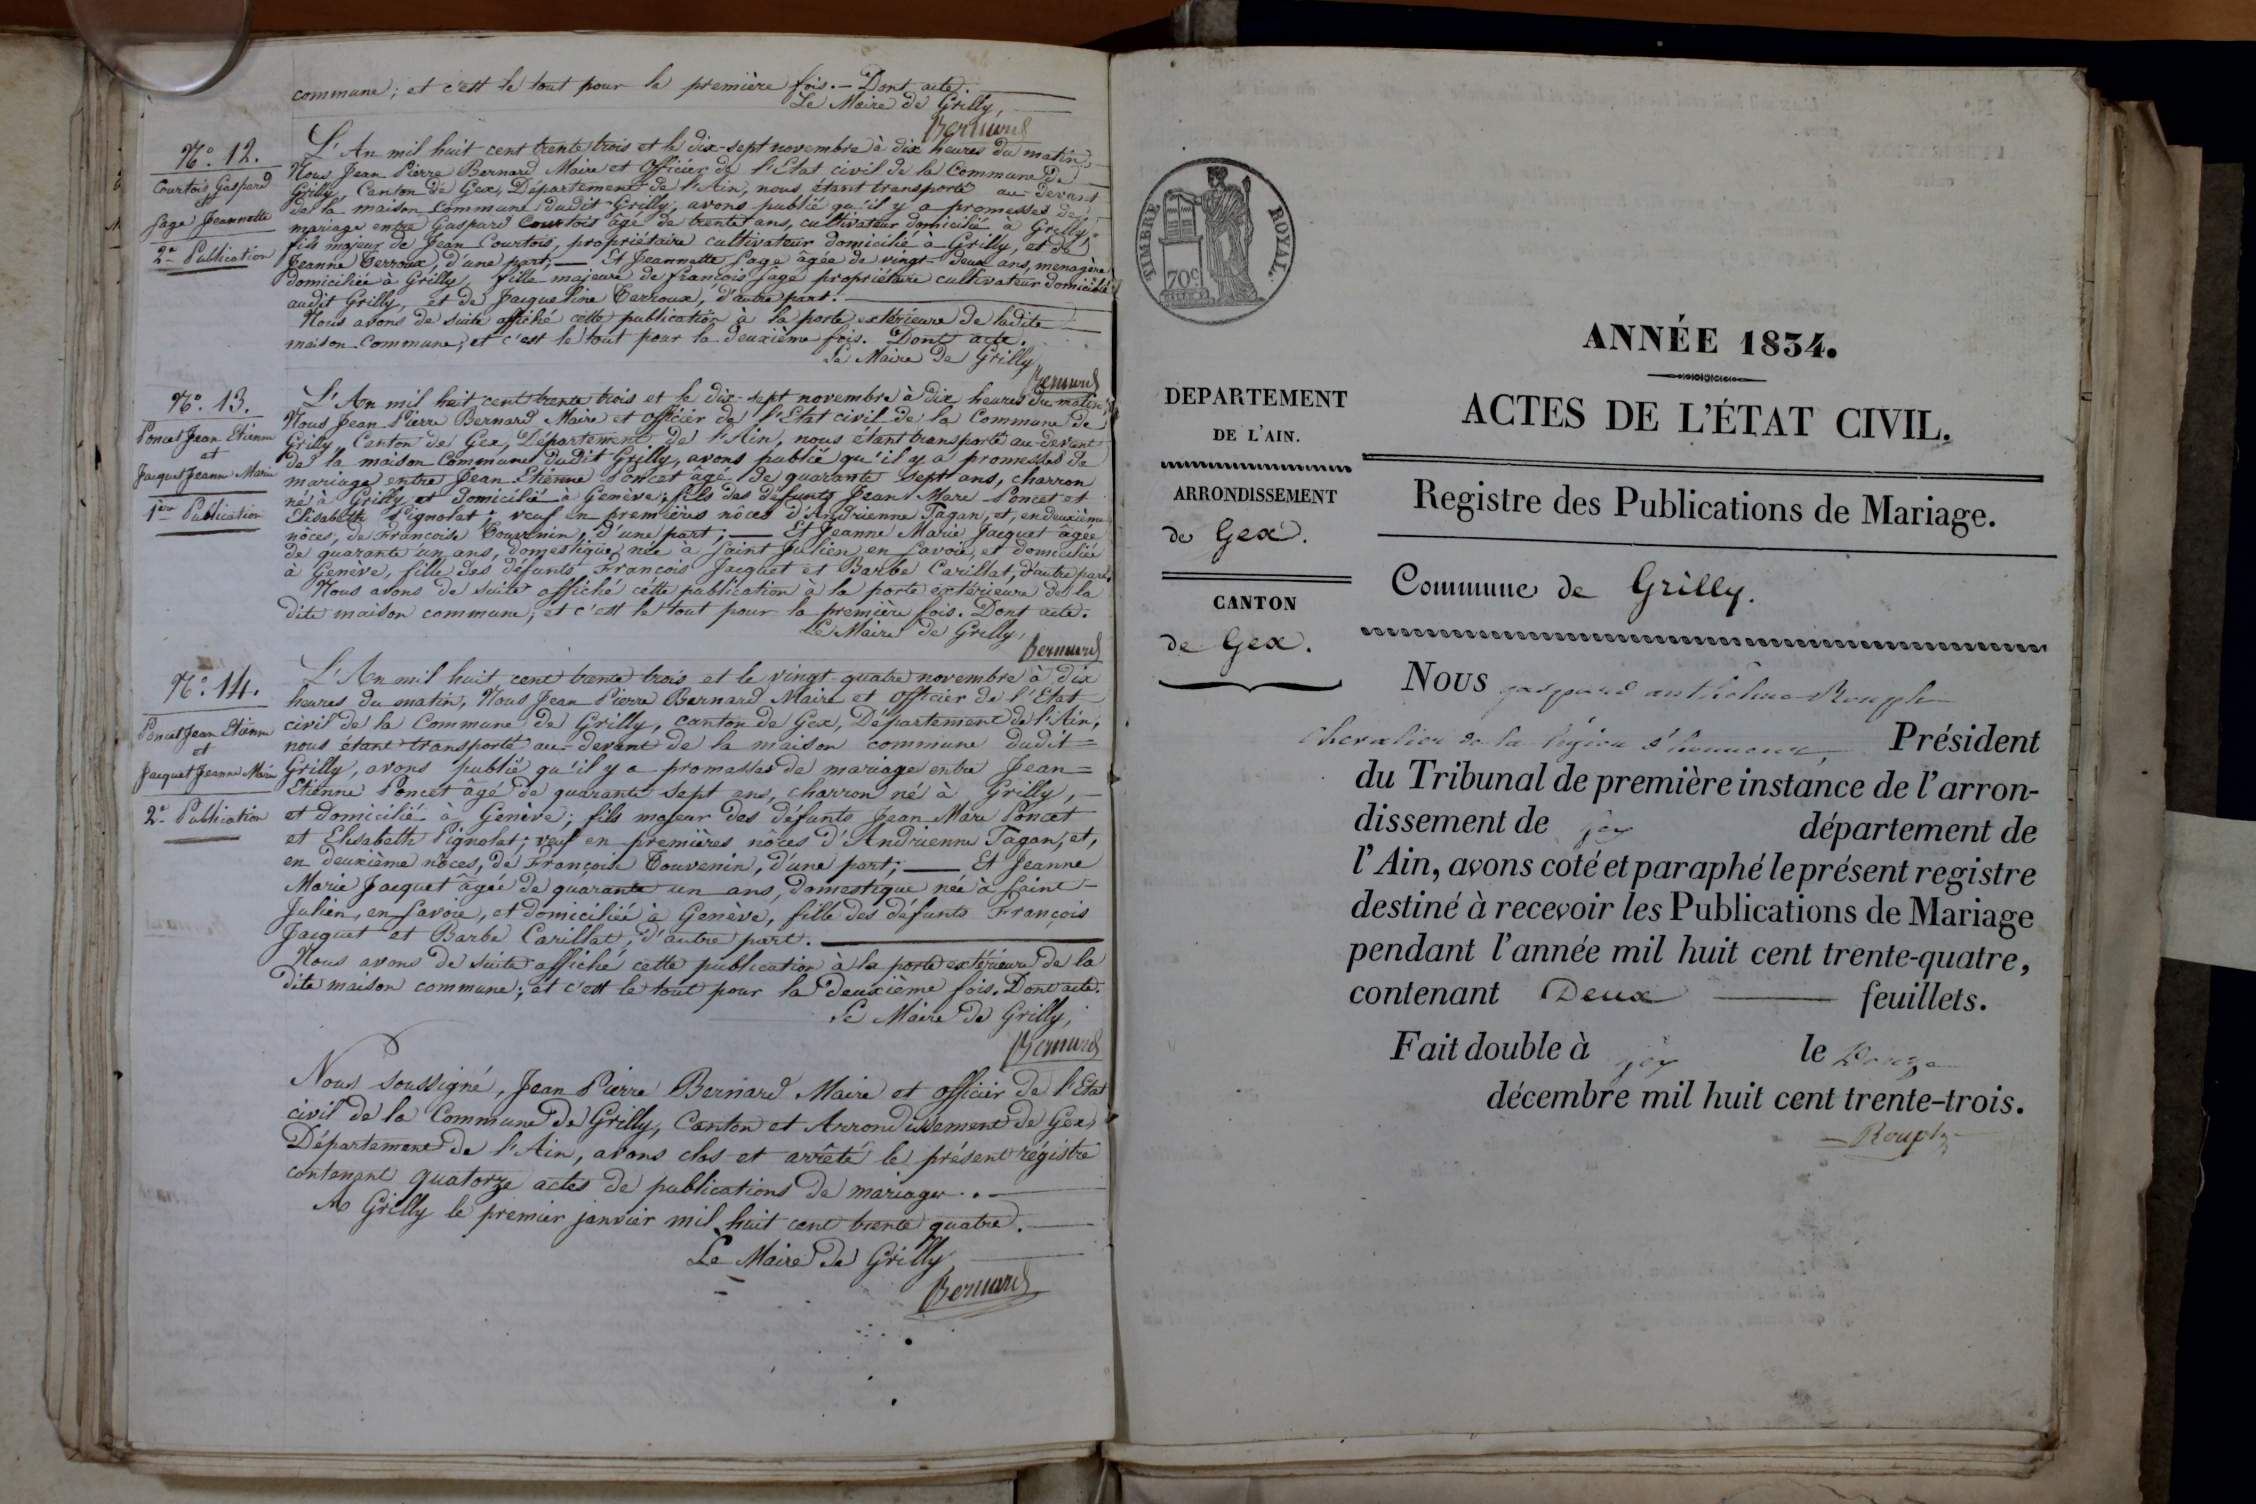 commune; et c'est le tout pour la première fois. — Dont acte.
Le Maire de Grilly,
Bernard
N.º 12.
Courtois Gaspard
et
Sage Jeannette
2.e Publication
L'An mil huit cent trente trois et le dix-sept novembre à dix heures du matin,
Nous Jean Pierre Bernard Maire et Officier de l'Etat civil de la Commune de
Grilly, Canton de Gex, Département de l'Ain, nous étant transporté au-devant
de la maison commune dudit Grilly, avons publié qu'il y a promesses de
mariage entre Gaspard Courtois âgé de trente ans, cultivateur domicilié à Grilly,
fils majeur de Jean Courtois, propriétaire cultivateur domicilié à Grilly, et de
Jeanne Terroux, d'une part; — Et Jeannette Sage âgée de vingt-deux ans, menagère
domiciliée à Grilly, fille majeure de françois Sage propriétaire cultivateur domicilié
audit Grilly, et de Jacqueline Terroux, d'autre part.
Nous avons de suite affiché cette publication à la porte extérieure de ladite
maison Commune; et c'est le tout pour la deuxième fois. Dont acte.
Le Maire de Grilly
Bernard
N.º 13.
Poncet Jean Etienne
et
Jacquet Jeanne Marie
1.ère Publication
L'An mil huit cent trente trois et le dix-sept novembre à dix heures du matin,
Nous Jean Pierre Bernard Maire et Officier de l'Etat civil de la Commune de
Grilly, Canton de Gex, Département de l'Ain, nous étant transporté au-devant
de la maison Commune dudit Grilly, avons publié qu'il y a promesses de
mariage entre Jean Etienne Poncet âgé de quarante sept ans, charron
né à Grilly et domicilié à Genève; fils des défunts Jean Marc Poncet et
Elisabeth Pignolat; veuf en premières nôces d'Andrienne Tagan, et, en deuxième
nôces, de Françoise Touvenin, d'une part; — Et Jeanne Marie Jacquet âgée
de quarante un ans, domestique, née à Saint Julien en Savoie, et domiciliée
à Genève, fille des défunts François Jacquet et Barbe Carillat, d'autre part.
Nous avons de suite affiché cette publication à la porte extérieure de la
dite maison commune; et c'est le tout pour la première fois. Dont acte.
Le Maire de Grilly,
Bernard
N.º 14.
Poncet Jean Etienne
et
Jacquet Jeanne Marie
2.e Publication
L'An mil huit cent trente trois et le vingt-quatre novembre à dix
heures du matin, Nous Jean Pierre Bernard Maire et Officier de l'Etat
civil de la Commune de Grilly, canton de Gex, Département de l'Ain,
nous étant transporté au-devant de la maison commune dudit=
Grilly, avons publié qu'il y a promesses de mariage entre Jean=
Etienne Poncet âgé de quarante sept ans, charron né à Grilly,
et domicilié à Genève; fils majeur des défunts Jean Marc Poncet
et Elisabeth Pignolat; veuf en premières nôces d'Andrienne Tagan, et,
en deuxième nôces, de Françoise Touvenin, d'une part; — Et Jeanne
Marie Jacquet âgée de quarante un ans, domestique née à Saint-
Julien, en Savoie, et domiciliée à Genève, fille des défunts François
Jacquet et Barbe Carillat, d'autre part.
Nous avons de suite affiché cette publication à la porte extérieure de la
dite maison commune; et c'est le tout pour la deuxième fois. Dont acte.
Le Maire de Grilly,
Bernard
Nous soussigné, Jean Pierre Bernard Maire et officier de l'Etat
civil de la Commune de Grilly, Canton et Arrondissement de Gex,
Département de l'Ain, avons clos et arrêté le présent régistre
contenant quatorze actes de publications de mariage.
A Grilly le premier janvier mil huit cent trente quatre.
Le Maire de Grilly
Bernard
TIMBRE ROYAL.
70c
ANNÉE 1834.
ACTES DE L'ÉTAT CIVIL.
DEPARTEMENT
DE L'AIN.
ARRONDISSEMENT
de Gex.
CANTON
de Gex.
Registre des Publications de Mariage.
Commune de Grilly.
Nous gaspard anthelme Rouph
chevalier de la légion d'honneur, Président
du Tribunal de première instance de l'arron-
dissement de gex département de
l'Ain, avons coté et paraphé le présent registre
destiné à recevoir les Publications de Mariage
pendant l'année mil huit cent trente-quatre,
contenant Deux feuillets.
Fait double à gex le Douze
décembre mil huit cent trente-trois.